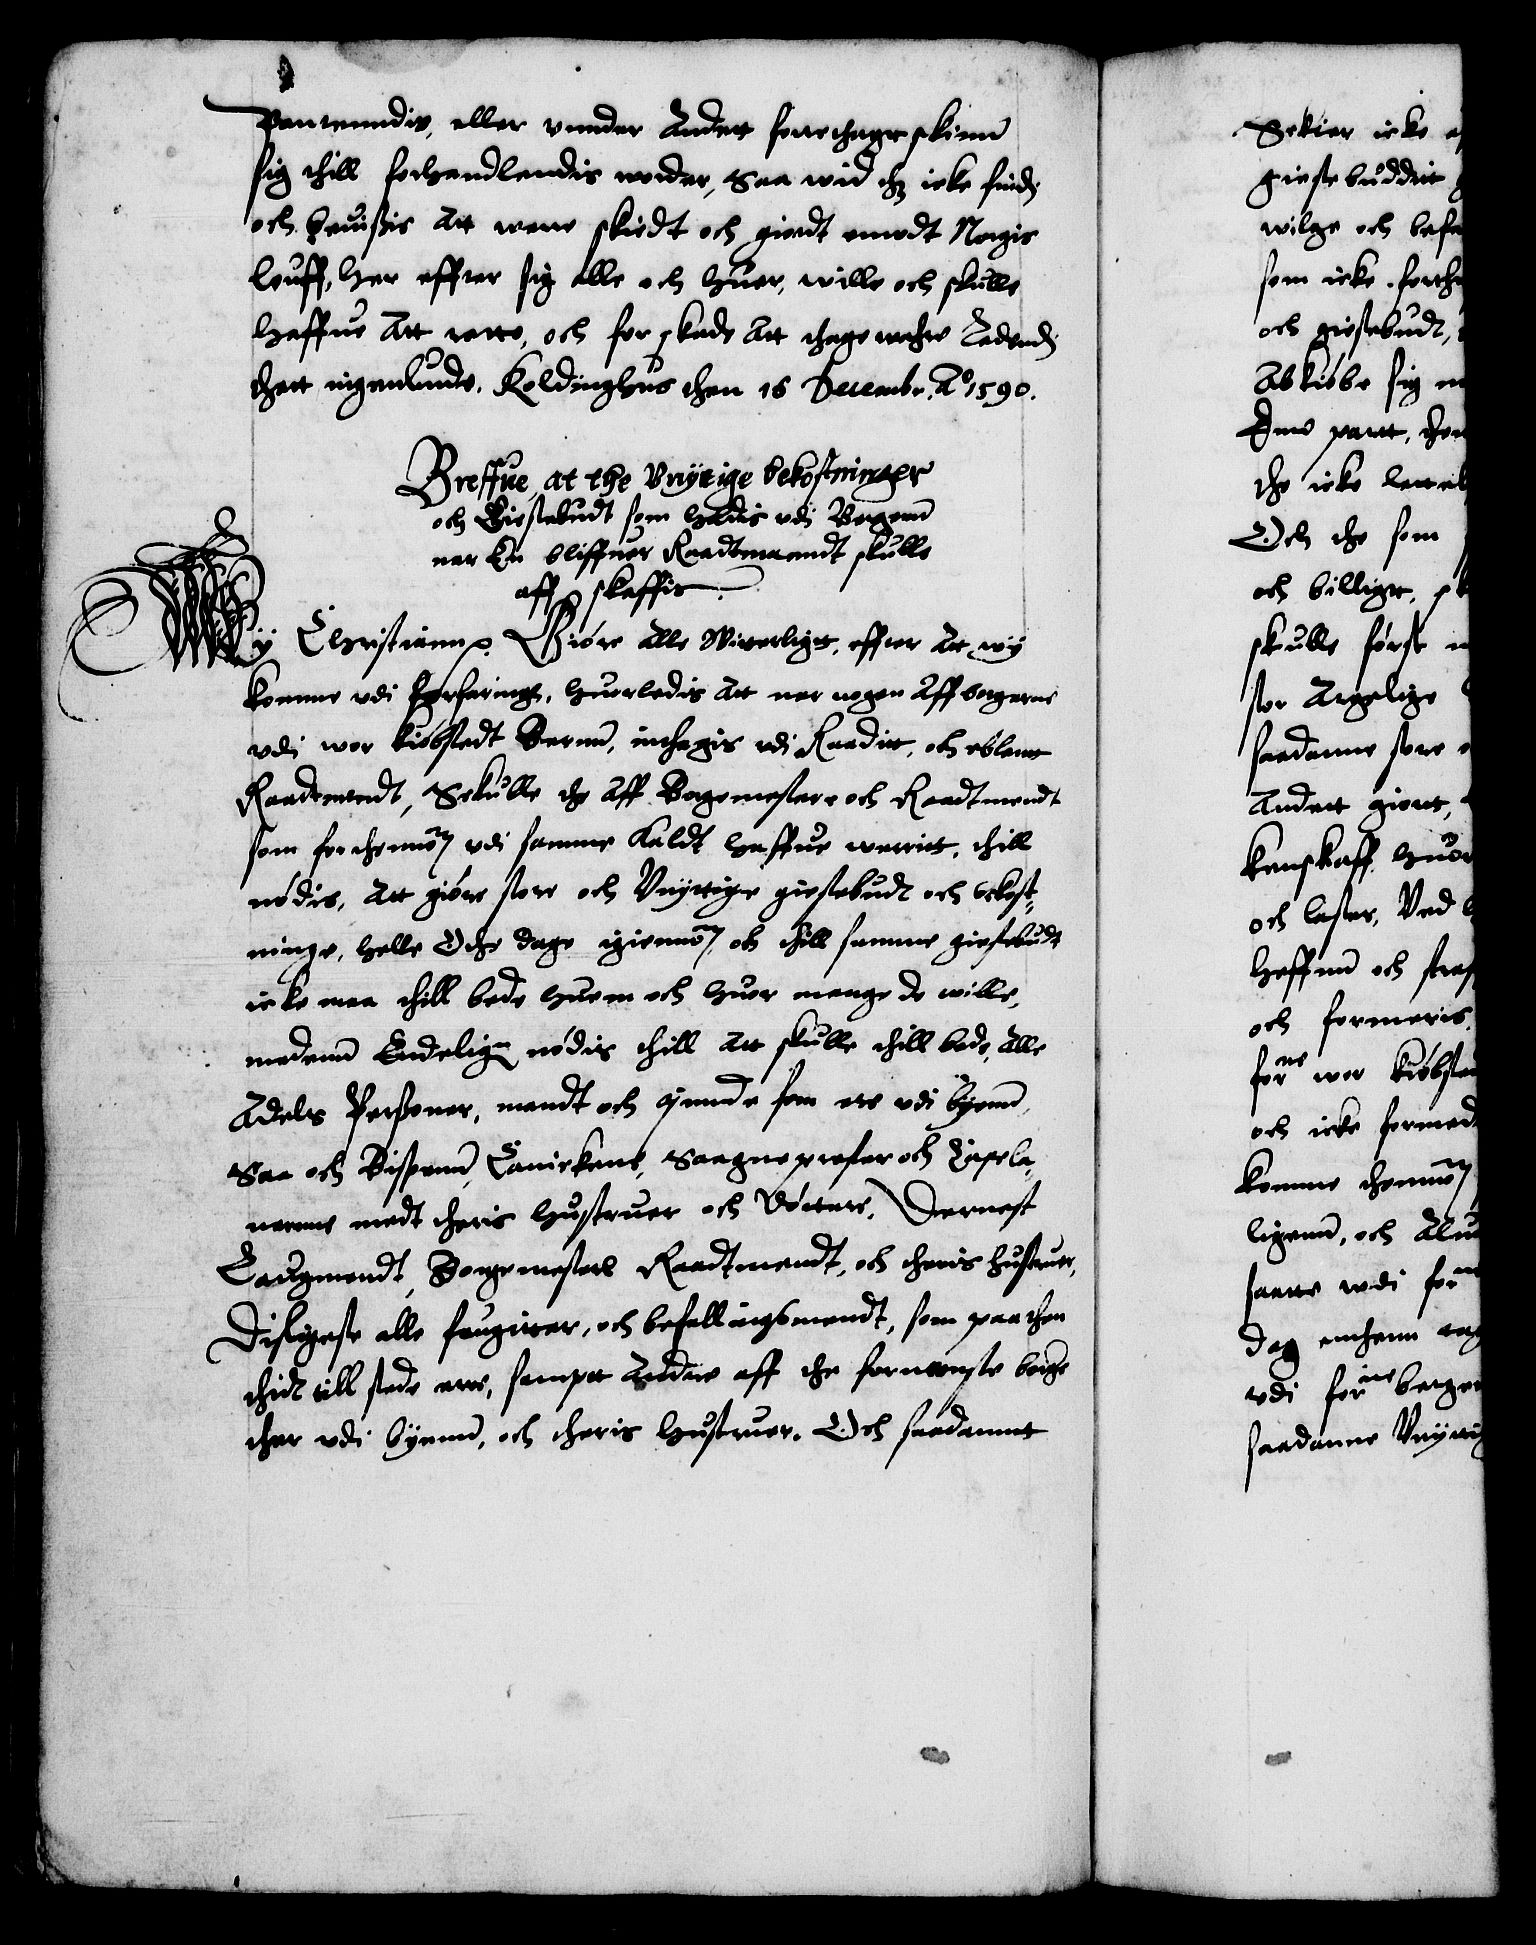 eller vnnder Andett forrethagit skinn
sig thill forhandlendis worder, Saa wid thz icke findis
och beuisis Att were skiedt och giordt emodt Norgis
Louff, Her effter sig alle och huer, wille och skulle
haffue Att rette, och for skade Att thage wahre Ladendis
thett ingenlunde. Koldinghus then 16 Decembr. A° 1590.
Breffue, at the Vnyttige bekostninger
och Giestebudt som holdis vdi Bergenn
naar En bliffuer Raadtmandt skulle
aff skaffis.
Wy Christiann p. Giøre Alle Witterligt, effter At wy
komme vdi forfaringe, huorledis Att naar nogen Aff borgerne
vdi wor kiøbstedt Bernn, inthagis vdi Raadit, och bliuer
Raadtmendt, Sckulle the Aff Borgemestere och Raadtmendt
som for thennom vdi samme Kaldt haffue werrit, thill
nødis, Att giøre store och Vnyttige giestebudt och bekost-
ninge, helle Othe dage igiennom, och thill samme giestebudt
icke maa thill bede huem och huor mange de wille,
medenn Endeligen nødis thill Att skulle thill bede, Alle
Adels Personer, mendt och quinde som ere vdi byenn,
Saa och Bispenn, Cannickene, Saagneprester och Capela,
nerne medt theris hustruer och Døttere, Dernest
Laugmendt, Borgemestere Raadtmendt, och theris hustruer,
Disligeste alle fougitter, och befallingsmendt, som paa then
thidt till stede ere, sampt Andre aff the fornemste borge
ther vdi byenn, och theris hustruer. Och saadannt
Sckier icke
giestebuddit
wilge och befa
som icke forth
och giestebudt,
Abkiøbe sig
partt, then
the icke
Och the som
och billigt, sk
skulle først
stor Argelige
saadanne store
Andett giort,
kenskaff, huor
och laster, Ved
Haffuer och straf
och formeris
forne wor kiøbsted
och icke formed
komme thennom
ligenn, och Alu
saatte wdi forn
dag
vdi forne berge
saadanne Vnytti